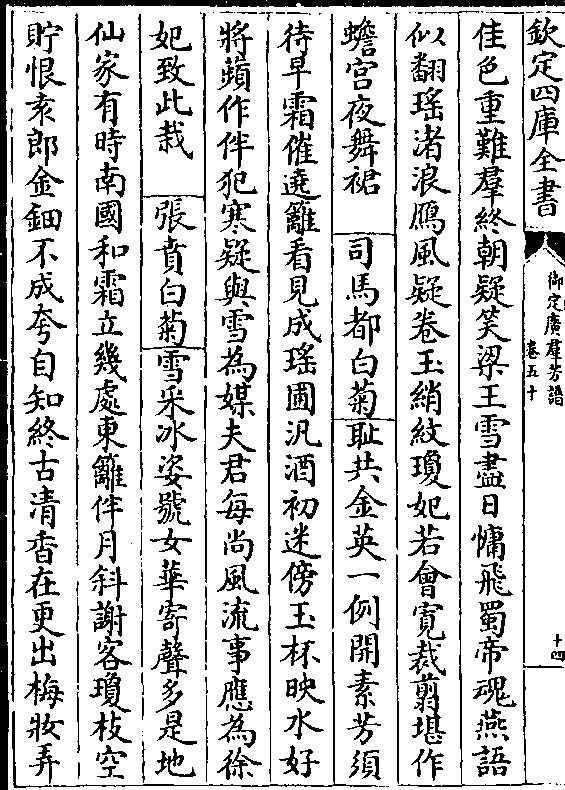 欽定四庫全書
御定廣羣芳譜
卷五十
十四
佳色重難羣終朝疑笑梁王雪盡日慵飛蜀帝魂燕語
似翻瑤渚浪鴈風疑卷玉綃紋瓊妃若會寛裁翦堪作
蟾宫夜舞裙 司馬都白菊耻共金英一例開素芳須
待早霜催遶籬看見成瑤圃汎酒初迷傍玉杯映水好
將蘋作伴犯寒疑與雪為媒夫君每尚風流事應為徐
妃致此栽 張賁白菊雪采冰姿號女華寄聲多是地
仙家有時南國和霜立幾處東籬伴月斜謝客瓊枝空
貯恨袁郎金鈿不成夸自知終古清香在更出梅妝弄